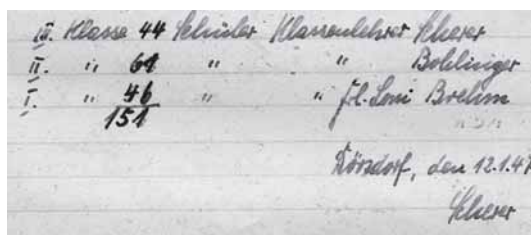 III. Klasse 44 Schüler Klassenlehrer Scherer
II. " 61 " " Bohlinger
I. " 46 " " Frl. Loni Brehm
151
Dörsdorf, den 12.1.47
Scherer